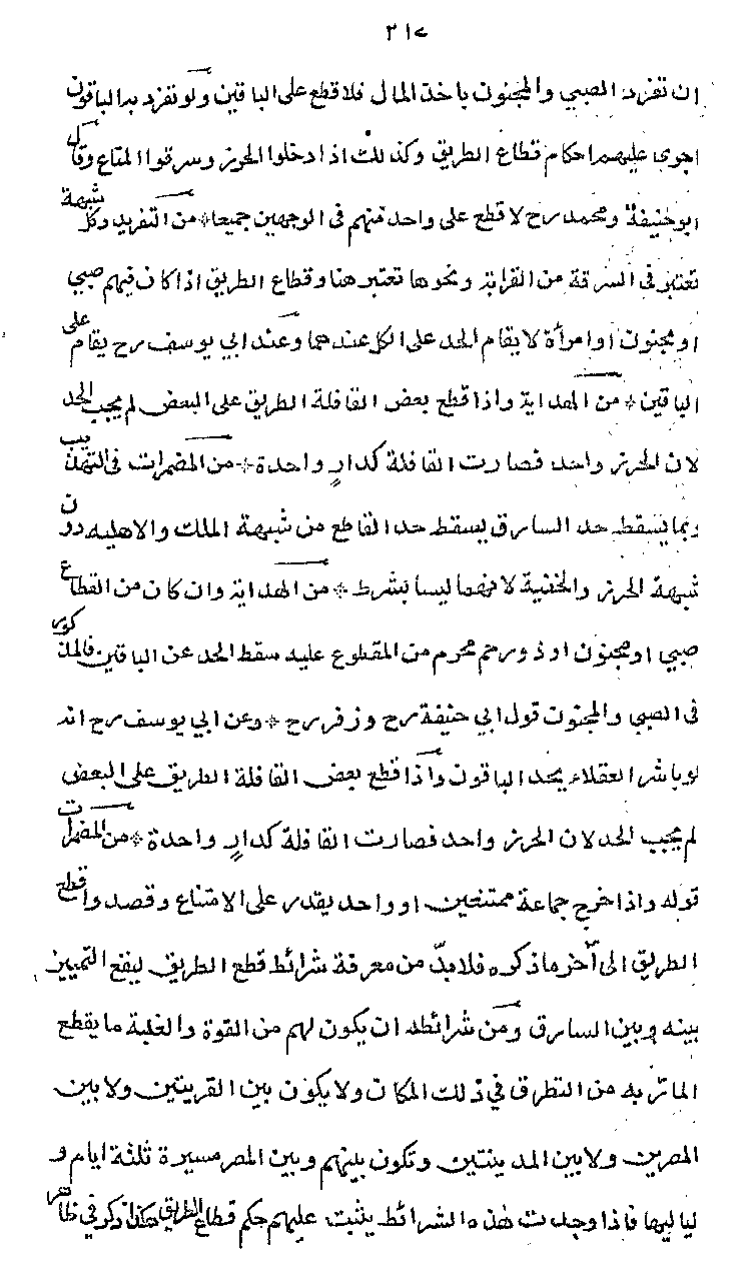 ٣١٧
ان تفرد الصبي والمجنون باخذ المال فلا قطع على الباقين ولو تفرد به الباقون
اجرى عليهم احكام قطاع الطريق وكذلك اذا دخلوا الحرز وسرقوا المتاع وقال
ابو حنيفة ومحمد رح لا قطع على واحد منهم في الوجهين جميعا * من التفريد وكل شبهة
تعتبر في السرقة من القرابة ونحوها تعتبر هنا وقطاع الطريق اذا كان فيهم صبي
او مجنون او امرأة لا يقام الحد على الكل عندهما وعند ابي يوسف رح يقام على
الباقين * من الهداية واذا قطع بعض القافلة الطريق على البعض لم يجب الحد
لان الحرز واحد فصارت القافلة كدارٍ واحدة * من المضمرات في التهذيب
وبما يسقط حد السارق يسقط حد القاطع من شبهة الملك والاهليه دون
شبهة الحرز والخفية لانهما ليسا بشرط * من الهداية وان كان من القطاع
صبي او مجنون او ذو رحم محرم من المقطوع عليه سقط الحد عن الباقين فالمذكور
في الصبي والمجنون قول ابي حنيفة رح وزفر رح * وعن ابي يوسف رح انه
لو باشر العقلاء يحد الباقون واذا قطع بعض القافلة الطريق على البعض
لم يجب الحد لان الحرز واحد فصارت القافلة كدارٍ واحدة * من المضمرات
قوله واذا خرج جماعة ممتنعين او واحد يقدر على الامتناع وقصدوا قطع
الطريق الى آخر ما ذكره فلا بدّ من معرفة شرائط قطع الطريق ليقع التمييز
بينه وبين السارق ومن شرائطه ان يكون لهم من القوة والغلبة ما يقطع
المارّ به من التطرق في ذلك المكان ولا يكون بين القريتين ولا بين
المصرين ولا بين المدينتين وتكون بينهم وبين المصر مسيرة ثلثة ايام و
لياليها فاذا وجدت هذه الشرائط يثبت عليهم حكم قطاع الطريق هكذا ذكر في ظاهر